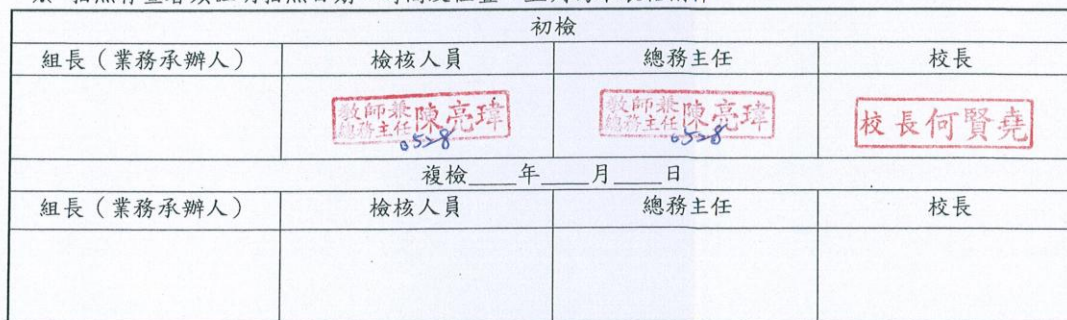 初檢
組長（業務承辦人） 檢核人員 總務主任 校長
教師兼總務主任 陳亮瑋 0528 教師兼總務主任 陳亮瑋 0528 校長何賢堯
複檢____年____月____日
組長（業務承辦人） 檢核人員 總務主任 校長